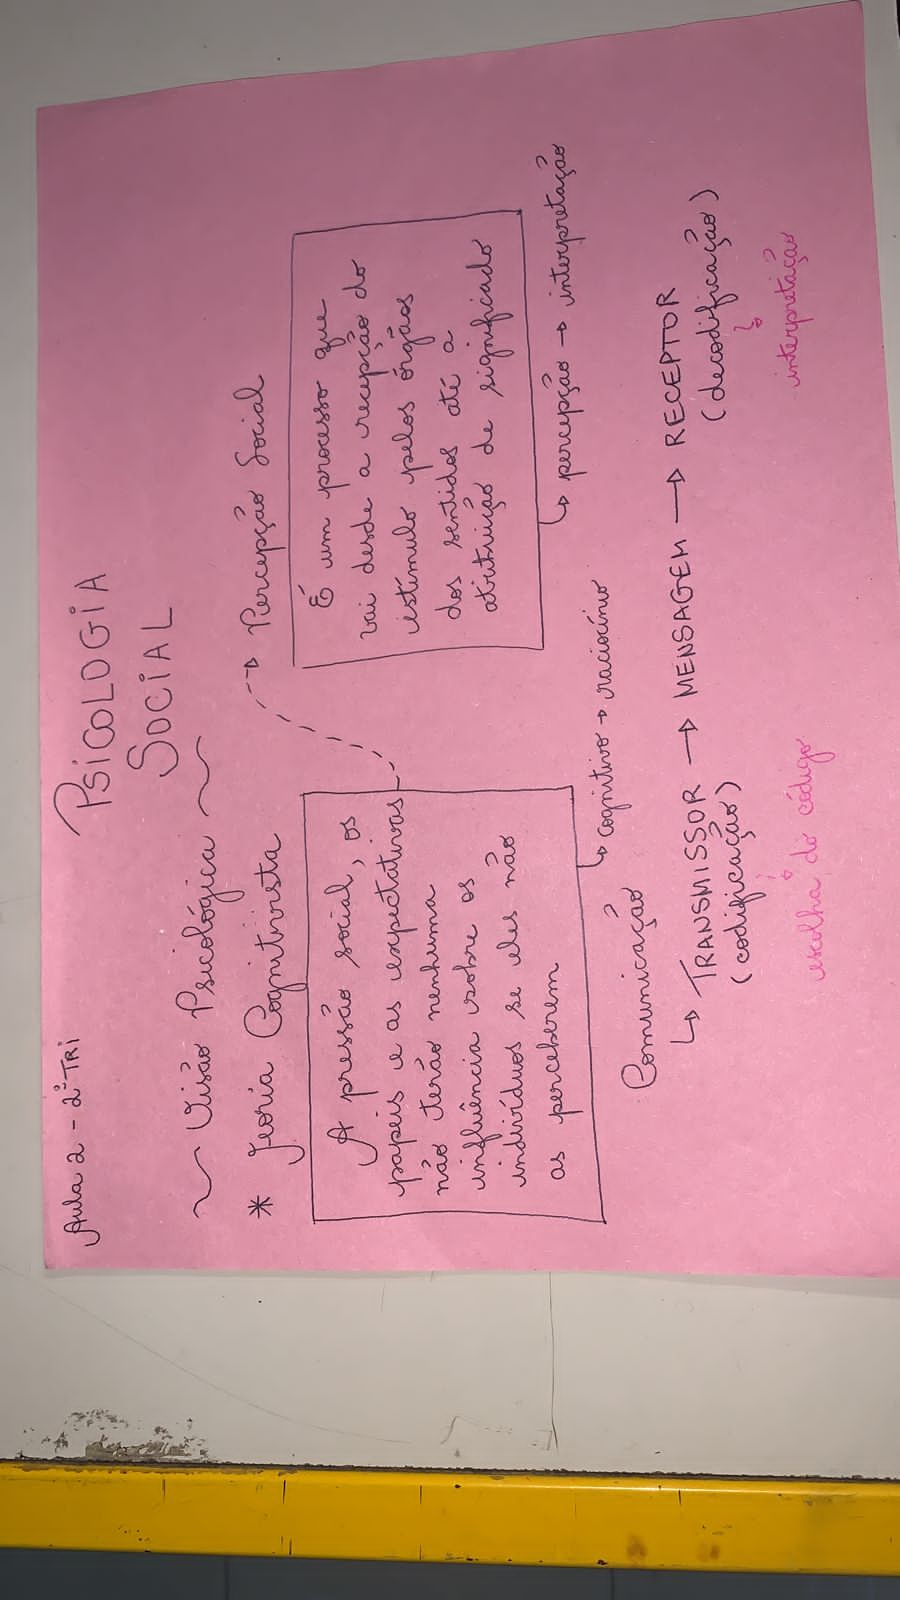 Aula 2 - 2º TRI
PSICOLOGIA
SOCIAL
~ Visão Psicológica ~
* Teoria Cognitivista
A pressão social, os
papéis e as expectativas
não terão nenhuma
influência sobre os
indivíduos se eles não
as perceberem
↳ cognitivo → raciocínio
→ Percepção Social
É um processo que
vai desde a recepção do
estímulo pelos órgãos
dos sentidos até a
atribuição de significado
↳ percepção → interpretação
Comunicação
↳ TRANSMISSOR → MENSAGEM → RECEPTOR
(codificação) (decodificação)
escolha do código interpretação